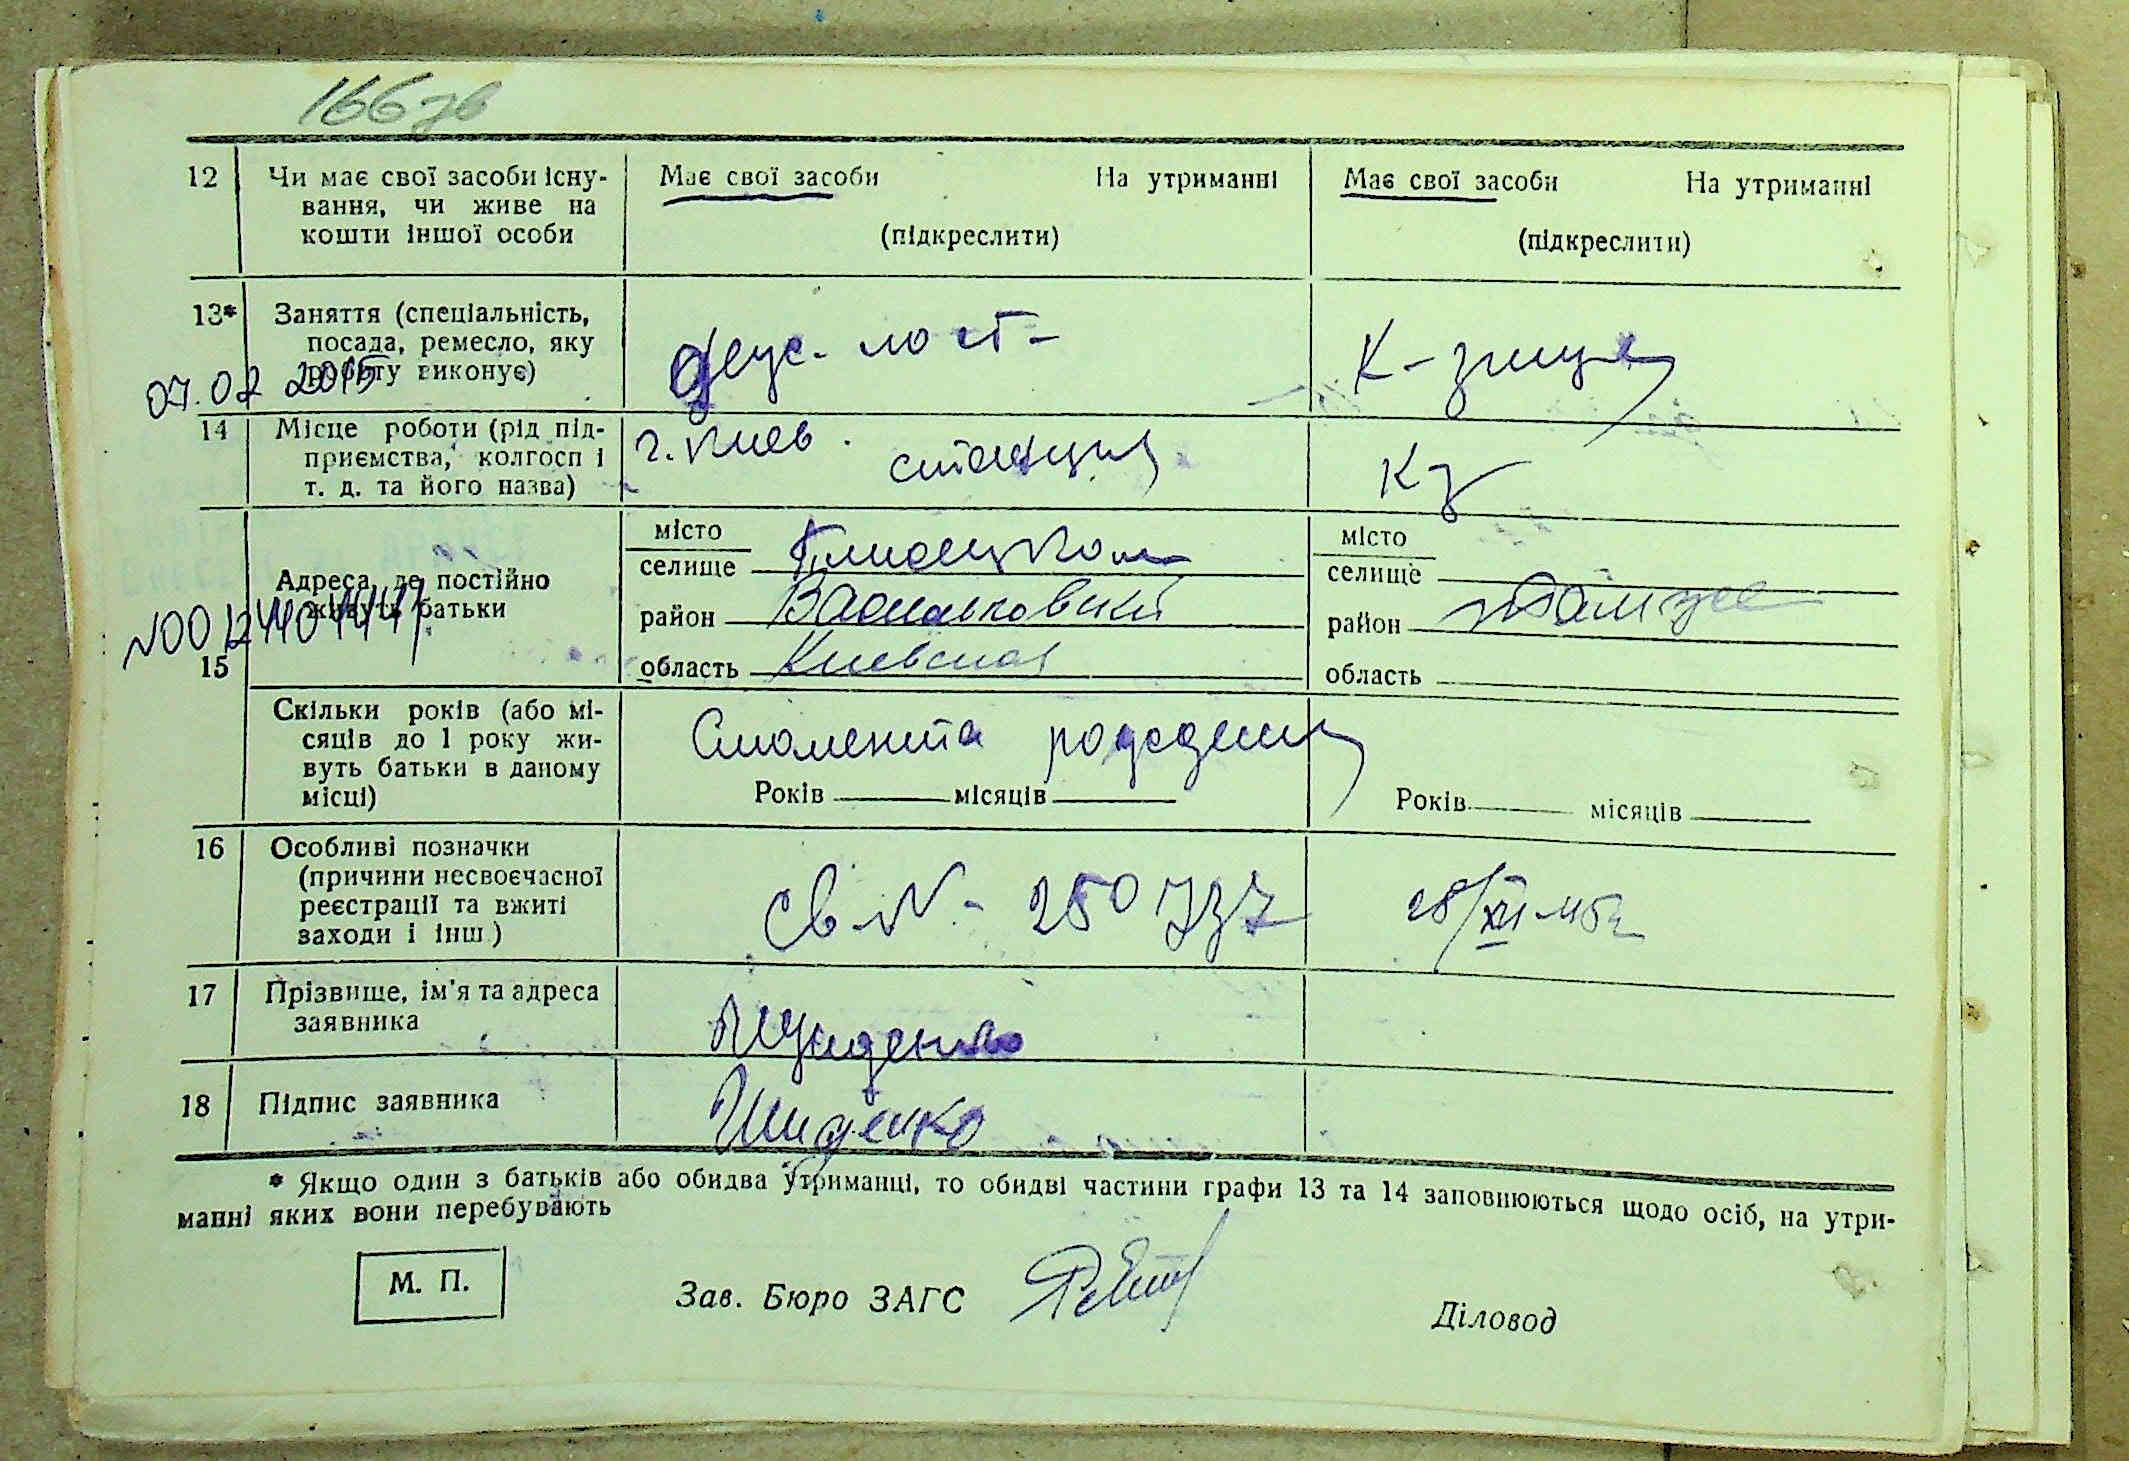 166 зв
12
Чи має свої засоби існу-
вання, чи живе на
кошти іншої особи
Має свої засоби
На утриманні
(підкреслити)
Має свої засоби
На утриманні
(підкреслити)
13*
Заняття (спеціальність,
посада, ремесло, яку
роботу виконує)
07.02 2015
14
Місце роботи (рід під-
приємства, колгосп і
т. д. та його назва)
г. Киев
станция
15
Адреса, де постійно
живуть батьки
місто
селище
район Васильковский
область Киевская
місто
селище
район там же
область
Скільки років (або мі-
сяців до 1 року жи-
вуть батьки в даному
місці)
Смомента рождения
Років місяців
Років місяців
16
Особливі позначки
(причини несвоєчасної
реєстрації та вжиті
заходи і інш.)
Св №- 250737
17
Прізвище, ім'я та адреса
заявника
18
Підпис заявника
* Якщо один з батьків або обидва утриманці, то обидві частини графи 13 та 14 заповнюються щодо осіб, на утри-
манні яких вони перебувають
М. П.
Зав. Бюро ЗАГС
Діловод